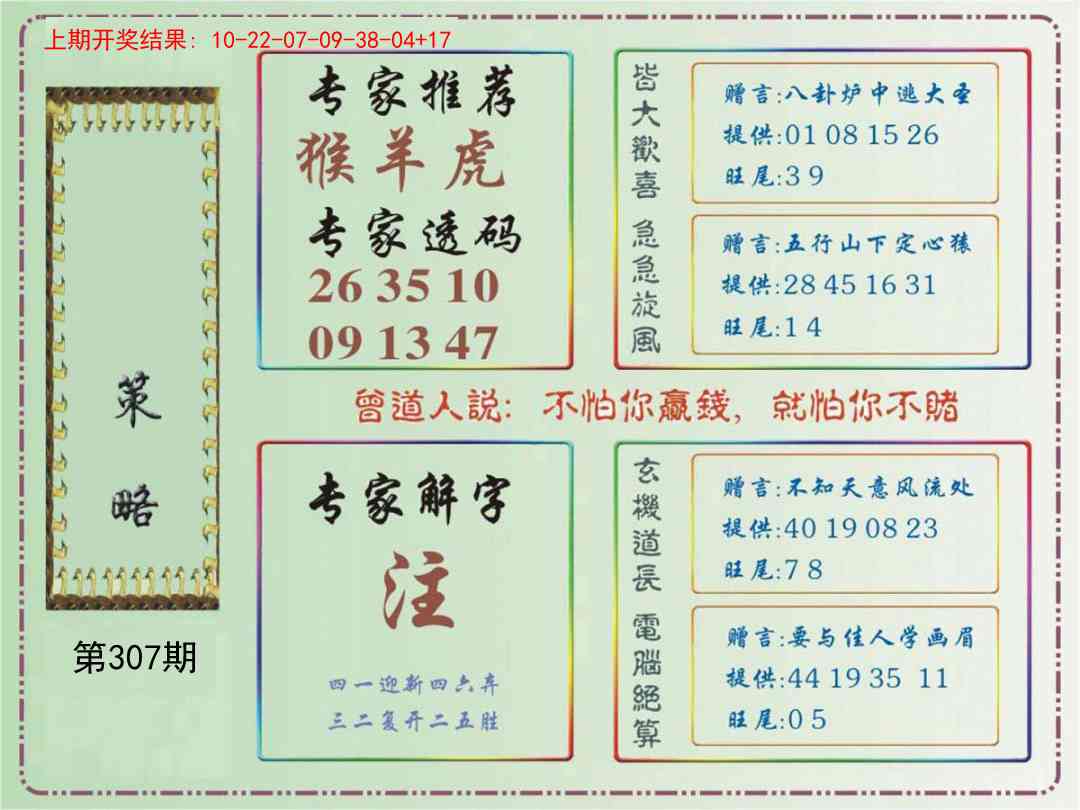 上期开奖结果: 10-22-07-09-38-04+17
策略
第307期
专家推荐
猴羊虎
专家透码
26 35 10
09 13 47
皆大歡喜
赠言:八卦炉中逃大圣
提供:01 08 15 26
旺尾:3 9
急急旋風
赠言:五行山下定心猿
提供:28 45 16 31
旺尾:1 4
曾道人説: 不怕你贏錢, 就怕你不賭
专家解字
注
四一迎新四六弃
三二复开二五胜
玄機道長
赠言:不知天意风流处
提供:40 19 08 23
旺尾:7 8
電腦絕算
赠言:要与佳人学画眉
提供:44 19 35 11
旺尾:0 5